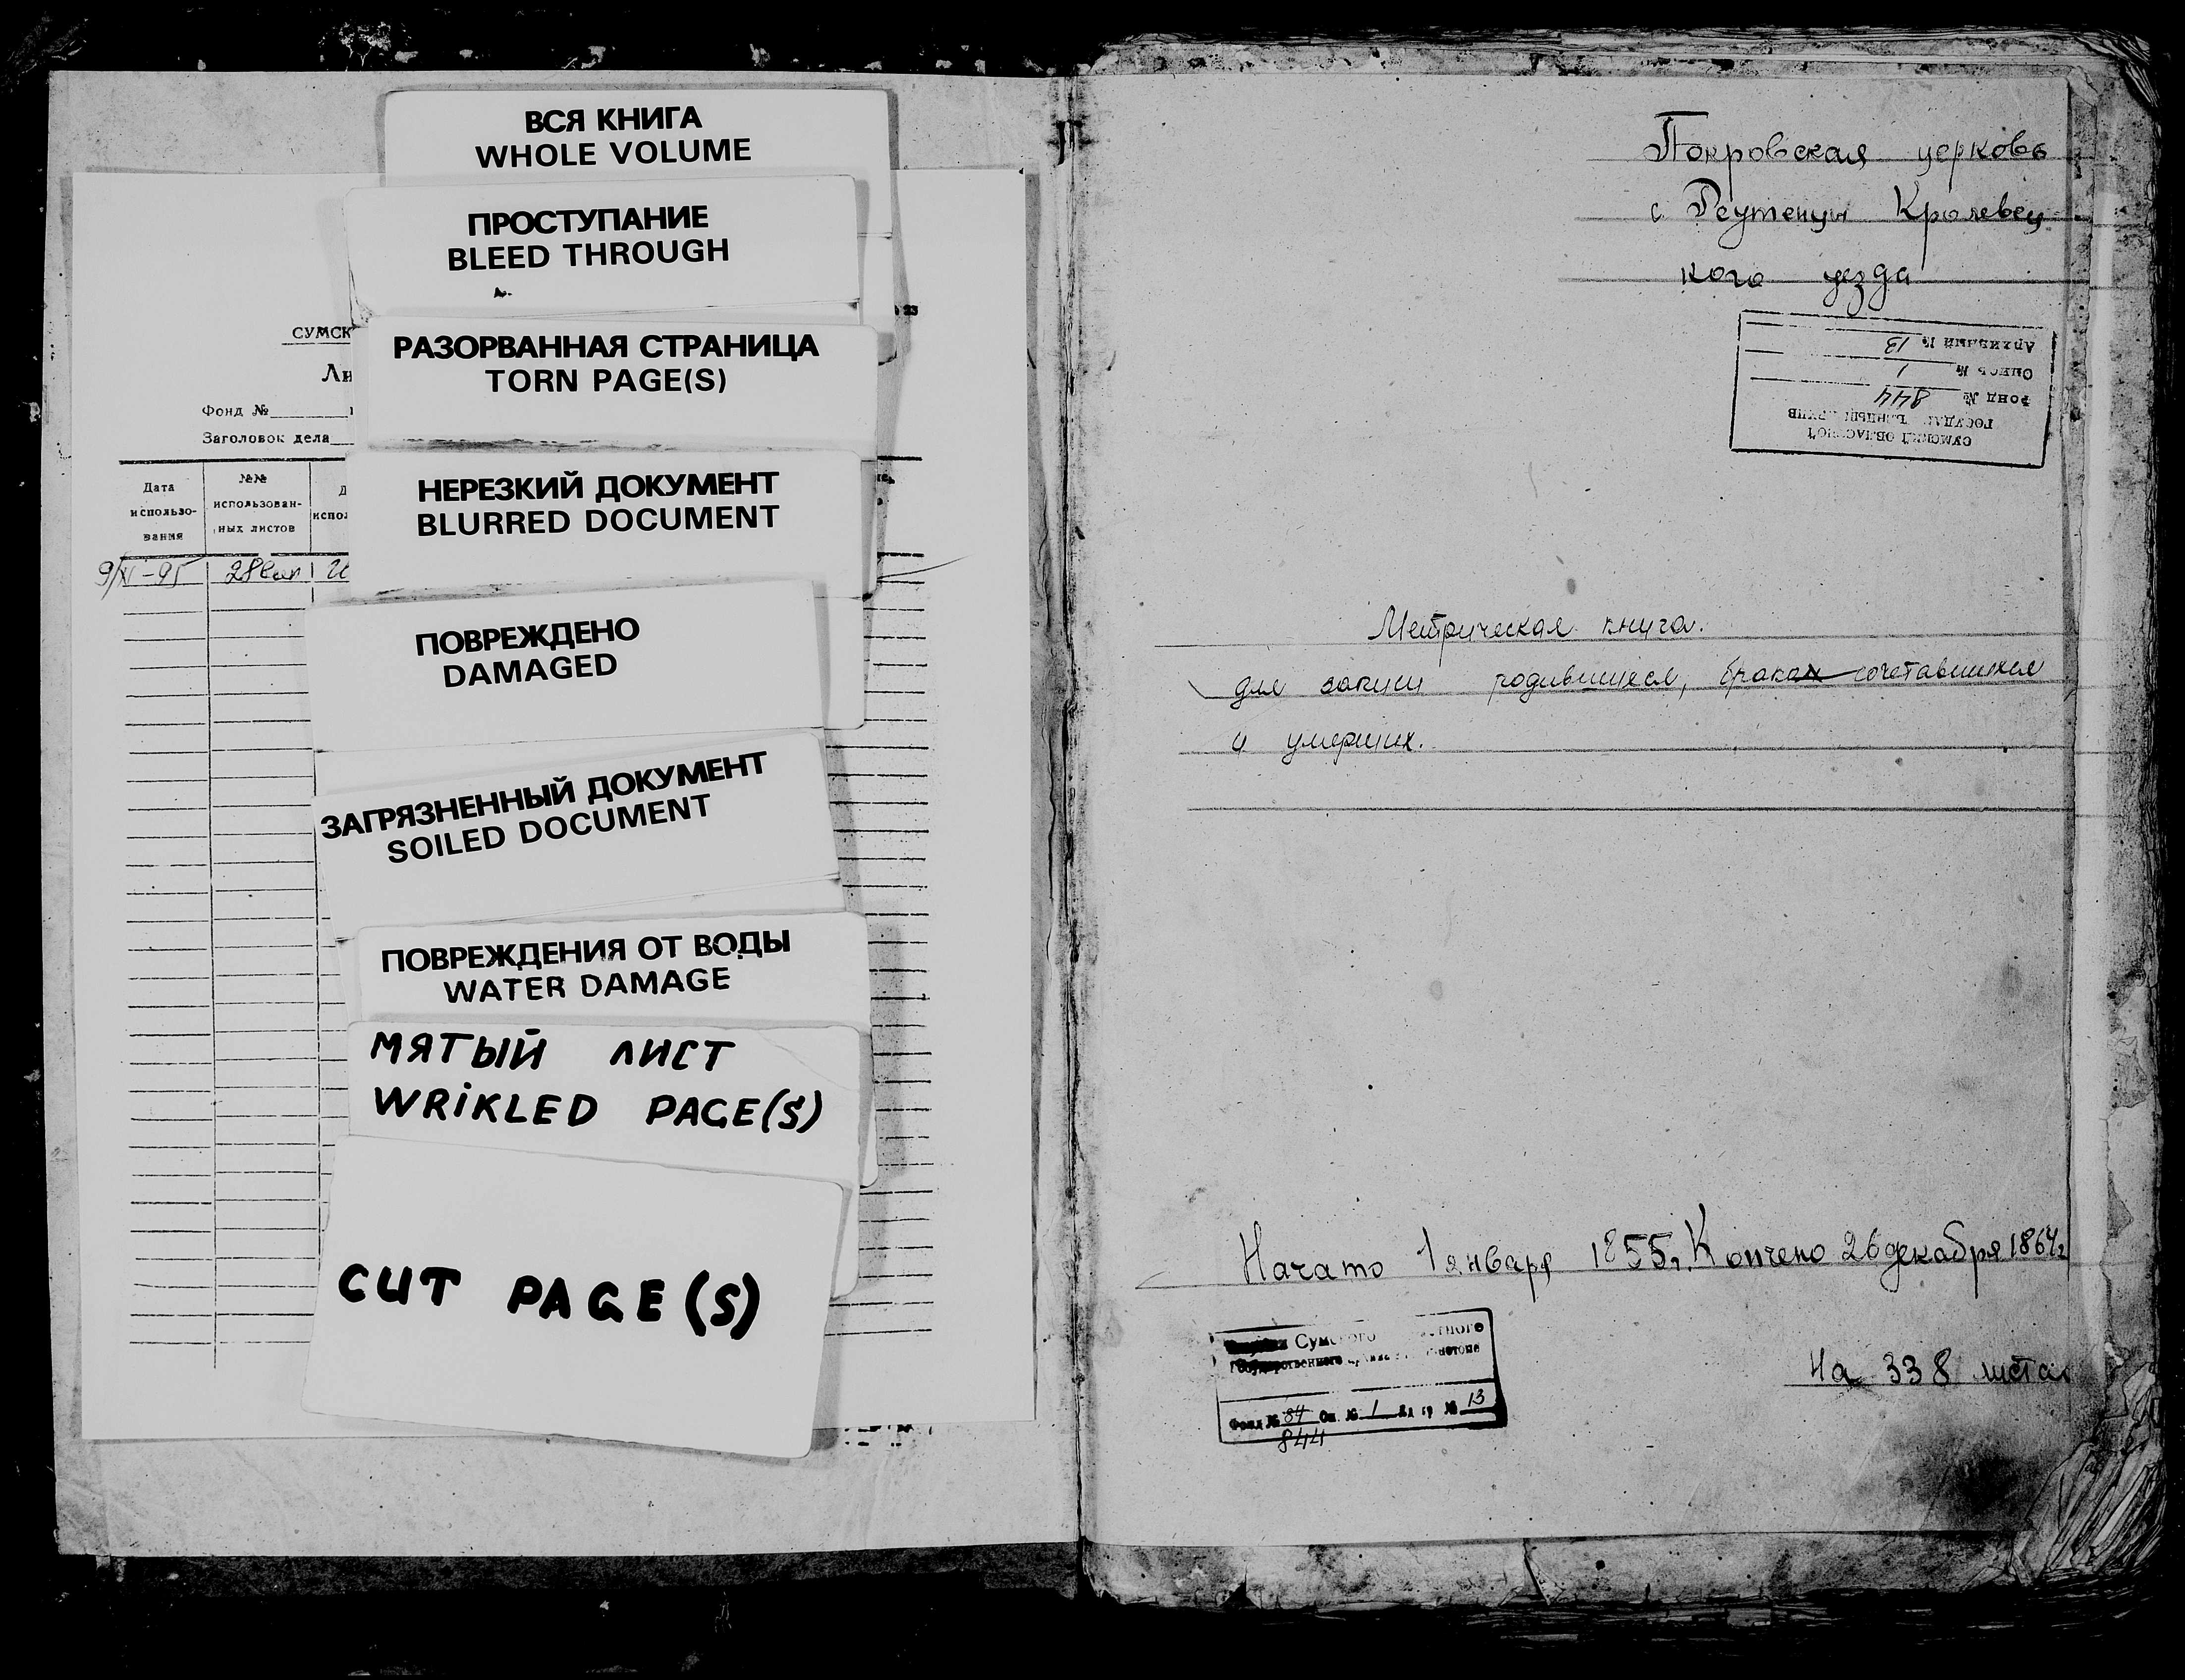 ВСЯ КНИГА
WHOLE VOLUME
ПРОСТУПАНИЕ
BLEED THROUGH
РАЗОРВАННАЯ СТРАНИЦА
TORN PAGE(S)
НЕРЕЗКИЙ ДОКУМЕНТ
BLURRED DOCUMENT
ПОВРЕЖДЕНО
DAMAGED
ЗАГРЯЗНЕННЫЙ ДОКУМЕНТ
SOILED DOCUMENT
ПОВРЕЖДЕНИЯ ОТ ВОДЫ
WATER DAMAGE
МЯТЫЙ ЛИСТ
WRIKLED PAGE(S)
CUT PAGE(S)
СУМСК
Ли
Фонд №
Заголовок дела
Дата использо-вания
№№ использован-ных листов
Д испол
9/XI-95 28
Покровская церковь
с. Реутенцы Кролевец
кого уезда
СУМСКИЙ ОБЛАСТНОЙ
ГОСУДАР
Фонд № 844
Опись № 1
Архивный № 13
Метрическая книга.
для записи родившихся, браках сочетавшихся
и умерших.
Начато 1 января 1855г. Кончено 26 декабря 1864г
На 338 листах
Сумского
Фонд № 84 Оп. № 1 Ед хр № 13
844